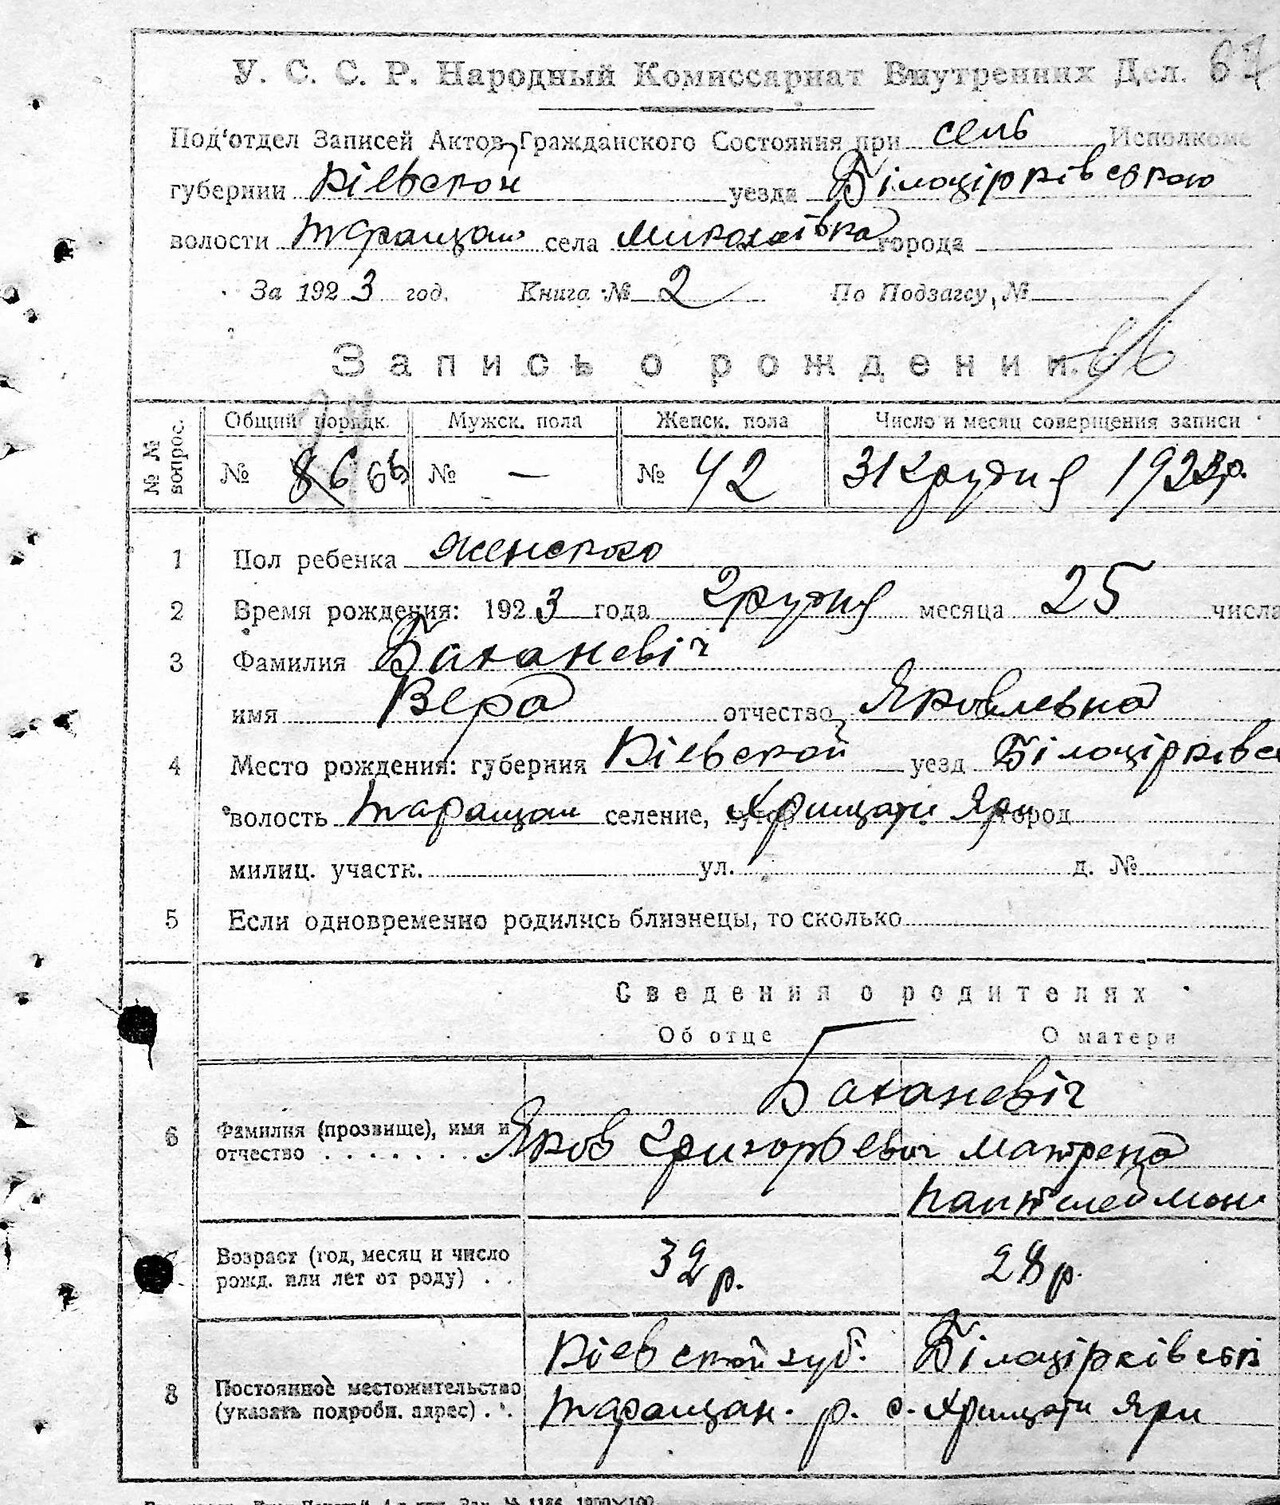 У. С. С. Р. Народный Комиссариат Внутренних Дел. 67
Под'отдел Записей Актов Гражданского Состояния при сель Исполкоме
губернии Кіевской уезда Білоцірківского
волости Таращан села Миколаівка города
За 1923 год. Книга № 2 По Подзагсу, №
Запись о рождении.
№ № вопрос. Общий порядк. Мужск. пола Женск. пола Число и месяц совершения записи
№ 86 66 № — № 42 31 грудня 1923р.
1 Пол ребенка женского
2 Время рождения: 1923 года грудня месяца 25 числа
3 Фамилия Баханевіч
имя Вера отчество Яковлевна
4 Место рождения: губерния Кіевской уезд Білоцірківс
волость Таращан селение, хутор Хрищати Яри город
милиц. участк. ул. д. №
5 Если одновременно родились близнецы, то сколько
Сведения о родителях
Об отце О матери
Баханевіч
6 Фамилия (прозвище), имя и Яков Григорьевич Матрена
отчество . . . . . . . Пантелеймон
7 Возраст (год, месяц и число 32 р. 28 р.
рожд. или лет от роду) . .
Кіевской губ. Білоцірківскі
8 Постоянное местожительство
(указать подробн. адрес) . . Таращан. р. с. Хрищати Яри